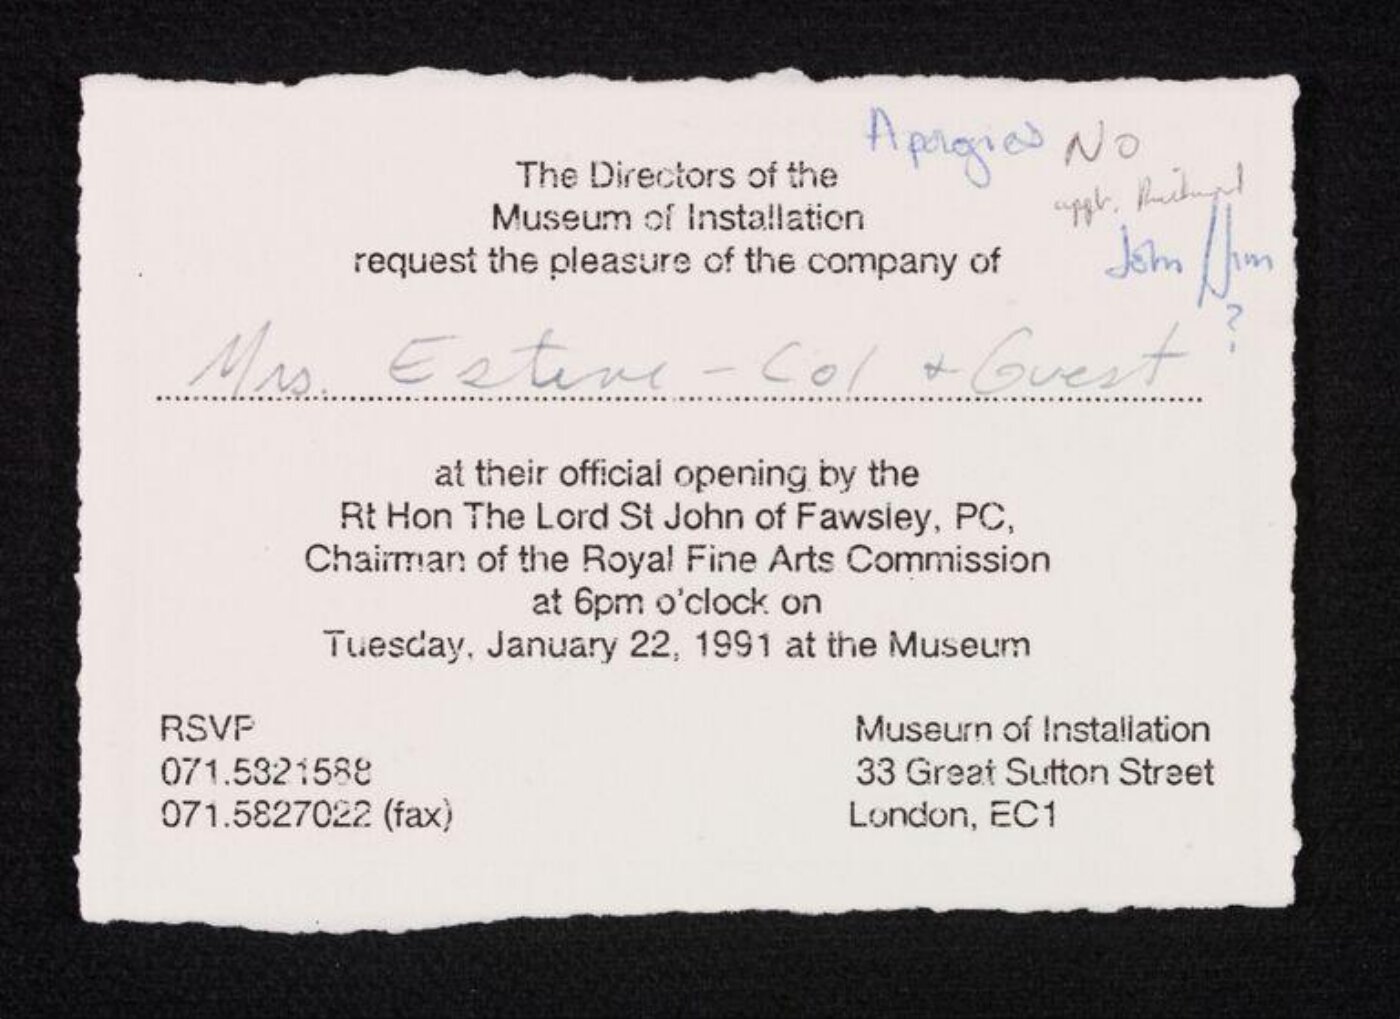 Apologies NO
appt.
John / Jim
?
The Directors of the
Museum of Installation
request the pleasure of the company of
Mrs. Esteve - Col + Guest
at their official opening by the
Rt Hon The Lord St John of Fawsley, PC,
Chairman of the Royal Fine Arts Commission
at 6pm o'clock on
Tuesday, January 22, 1991 at the Museum
RSVP
071.5821588
071.5827022 (fax)
Museum of Installation
33 Great Sutton Street
London, EC1